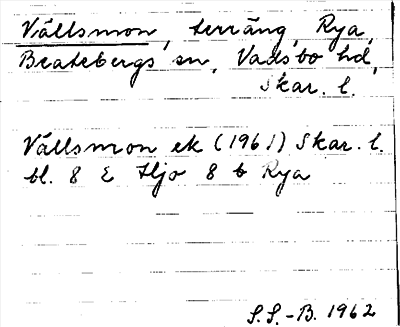 Vållsmon, terräng, Rya,
Beatebergs sn, Vadsbo hd,
Skar. l.
Vållsmon ek (1961) Skar. l.
bl. 8 E Hjo 8 b Rya
S.S.-B. 1962